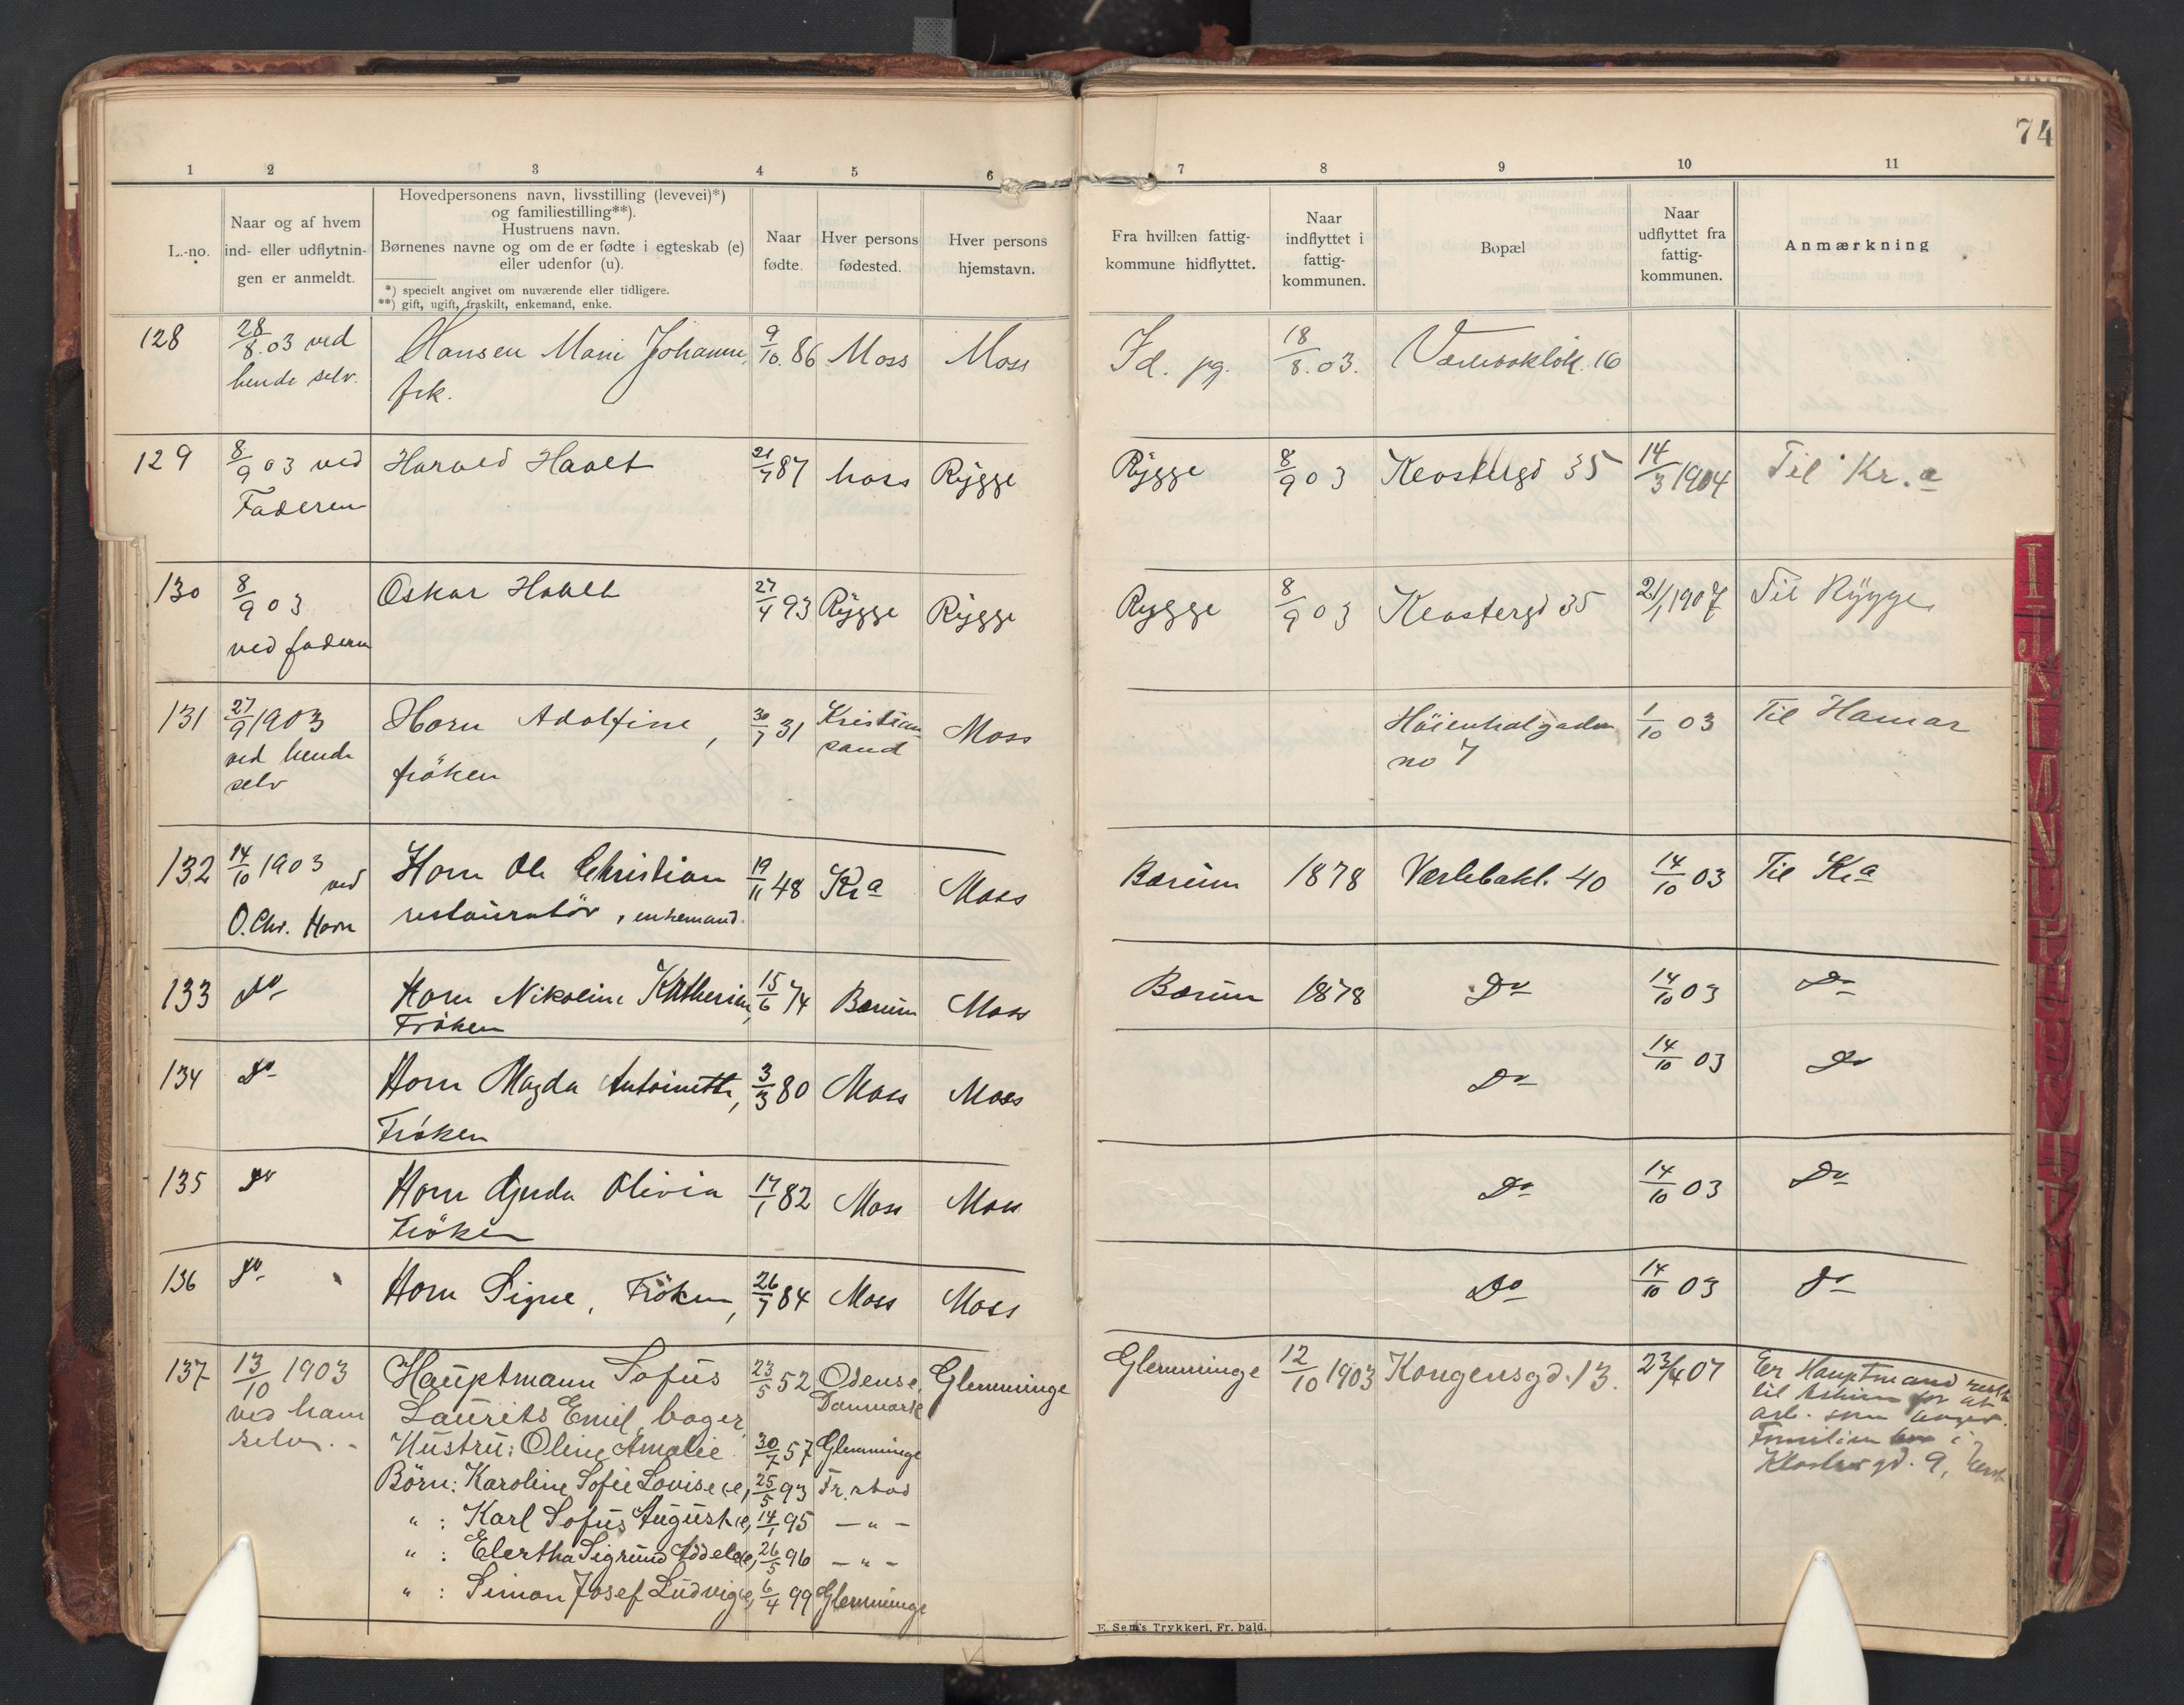 74
1 2 3 4 5 6 7 8 9 10 11
L.-no.
Naar og af hvem
ind- eller udflytnin-
gen er anmeldt.
Hovedpersonens navn, livsstilling (levevei)*)
og familiestilling**).
Hustruens navn.
Børnenes navne og om de er fødte i egteskab (e)
eller udenfor (u).
*) specielt angivet om nuværende eller tidligere.
**) gift, ugift, fraskilt, enkemand, enke.
Naar
fødte.
Hver persons
fødested.
Hver persons
hjemstavn.
Fra hvilken fattig-
kommune hidflyttet.
Naar
indflyttet i
fattig-
kommunen.
Bopæl
Naar
udflyttet fra
fattig-
kommunen.
Anmærkning
128 28/8.03 ved Hansen Marie Johanne, 9/10.86 Moss Moss Id. pg. 18/8.03. Værlebakløk. 16
hende selv. frk.
129 8/9 03 ved Harald Havelt 21/7 87 Moss Rygge Rygge 8/9 03 Klostergd 35 14/3 1904 Til Kr.a
Faderen
130 8/9 03 Oskar 27/4 93 Rygge Rygge Rygge 8/9 03 Klostergd 35 21/1 1907 Til Rygge
ved faderen
131 27/9 1903 Horn Adolfine, 30/7 31 Kristian- Moss Høienhalgaden 1/10 03 Til Hamar
ved hende frøken sand no 7
selv
132 14/10 1903 ved Horn Ole Christian 19/11 48 Kra Moss Bærum 1878 Værlebakl. 40 14/10 03 Til Kra
O. Chr. Horn restauratør, enkemand.
133 Do Horn Nikoline Katherine, 15/6 74 Bærum Moss Bærum 1878 Do 14/10 03 Do
Frøken
134 Do Horn Magda Antoinette, 3/3 80 Moss Moss Do 14/10 03 Do
Frøken
135 Do Horn Gyda Olivia 17/1 82 Moss Moss Do 14/10 03 Do
Frøken
136 Do Horn Signe, Frøken, 26/7 84 Moss Moss Do 14/10 03 Do
137 13/10 1903 Hauptmann Sofus 23/5 52 Odense, Glemminge Glemminge 12/10 1903 Kongensgd. 13. 23/4 07 Er Hauptmand reist
ved ham Laurits Emil, bager, Danmark til Askim for at
selv. - Hustru: Oline Amalie 30/7 57 Glemminge arb. som bager.
Børn: Karoline Sofie Lovise (e), 25/5 93 Fr.stad Familien bor i
" : Karl Sofus August (e), 14/1 95 — " — Klostergd. 9,
" : Elertha Sigrund (e), 26/5 96 — " —
" : Simon Josef Ludvig (e), 6/4 99 Glemminge
E. Sem's Trykkeri, Fr. hald.